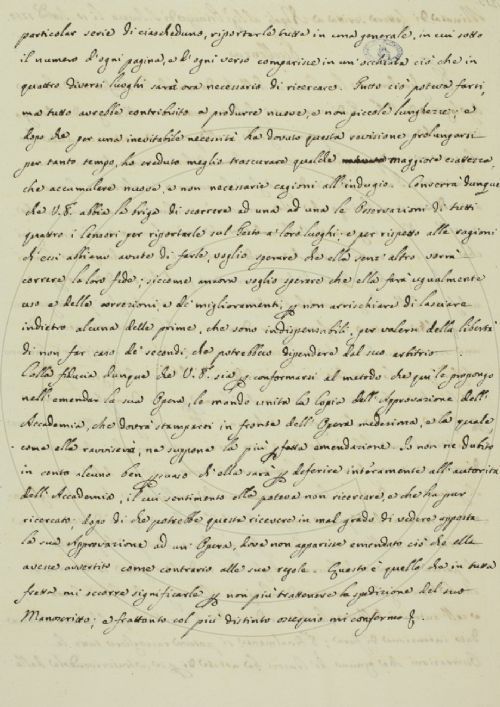 particolar serie di ciascheduno, riportarle tutte in una generale, in cui sotto
il numero d'ogni pagina, e d'ogni verso comparisce in un'occhiata ciò che in
quattro diversi luoghi sarà ora necessario di ricercare. Tutto ciò poteva farsi,
ma tutto avrebbe contribuito a produrre nuove, e non piccole lunghezze; e
dopo che per una inevitabile necessità ha dovuto questa revisione prolungarsi
per tanto tempo, ho creduto meglio trascurare qualche maggiore esattezza,
che accumulare nuove, e non necessarie cagioni all'indugio. Converrà dunque
che V.S. abbia la briga di scorrere ad una ad una le Osservazioni di tutti
quattro i Censori per riportarle sul Testo a' loro luoghi: e per rispetto alle ragioni
di cui abbiano avuto di farle, voglio sperare che ella senz'altro vorrà
correre la loro fede; siccome ancora voglio sperare che ella farà ugualmente
uso e delle correzioni, e de' miglioramenti, per non arrischiare di lasciare
indietro alcuna delle prime, che sono indispensabili, per valersi della libertà
di non far caso de' secondi, che potrebbero dipendere dal suo arbitrio.
Colla fiducia dunque che V.S. sia per conformarsi al metodo che qui le propongo
nell'emendar la sua Opera, le mando unita la Copia dell'Approvazione dell'
Accademia, che dovrà stamparsi in fronte dell'Opera medesima, e la quale
come ella ravviserà, ne suppone la più esatta emendazione. Io non ne dubito
in conto alcuno ben persuaso ch'ella sarà per deferire interamente all'autorità
dell'Accademia, il cui sentimento ella poteva non ricercare, e che ha pur
ricercato; dopo di che potrebbe questa ricevere in mal grado di vedere apposta
la sua Approvazione ad un'Opera, dove non apparisse emendato ciò ch'ella
avesse avvertito come contrario alle sue regole. Questo è quello che in tutta
fretta mi occorre significarle per non più trattenere la spedizione del suo
Manoscritto; e frattanto col più distinto ossequio mi confermo &.